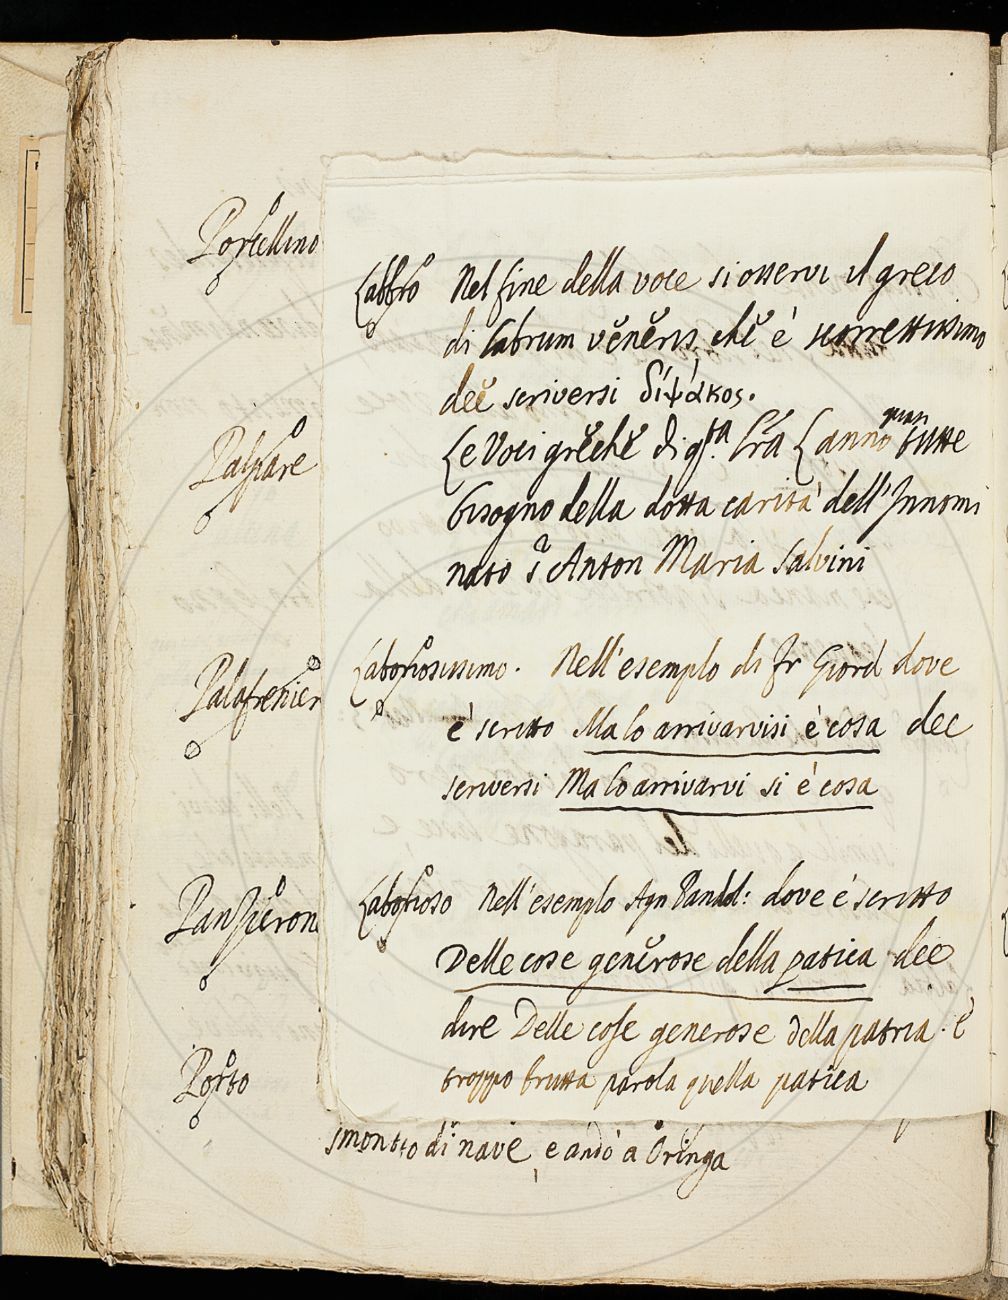 Porcellino
Palpare
Palafrenier
Panzieron
Porto
Labbro Nel fine della voce si osservi il greco
di labrum venĕris chĕ è scorrettissimo
deĕ scriversi δίψακος.
Le Voci grĕchĕ di qsta Lra L anno quasi tutte
bisogno della dotta carità dell'Innomi
nato Sr Anton Maria Salvini
Laboriosissimo. Nell'esemplo di Fr Giord dove
è scritto Ma lo arrivarvisi è cosa dee
scriversi Ma lo arrivarvi si è cosa
Laborioso Nell'esemplo Agn Pandol: dove è scritto
Delle cose genĕrose della patica dee
dire Delle cose generose della patria. È
troppo brutta parola quella patica
smontto di navĕ e andò a Oringa